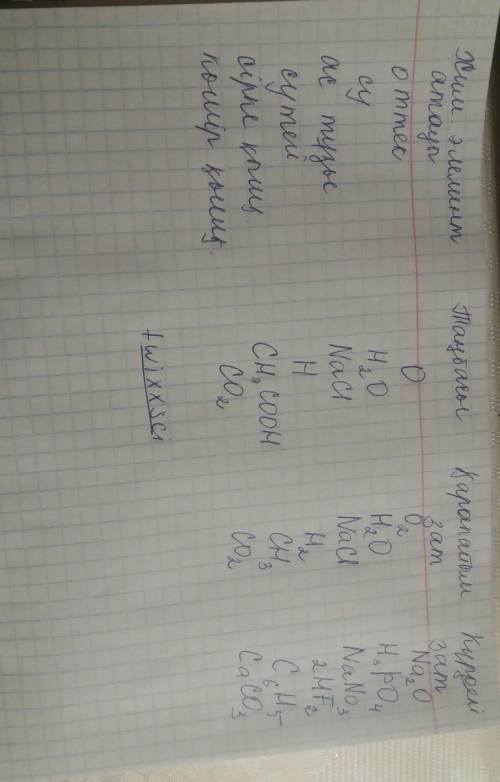 Хим. элемент Таңбасы Қарапайым Күрделі
атауы зат зат
оттек O O₂ Na₂O
су H₂O H₂O H₃PO₄
ас тұзы NaCl NaCl NaNO₃
сутек H H₂ 2HF₂
сірке қышқ CH₃COOH CH₃ C₆H₅
көмір қышқ. CO₂ CO₂ CaCO₃
twixxsci